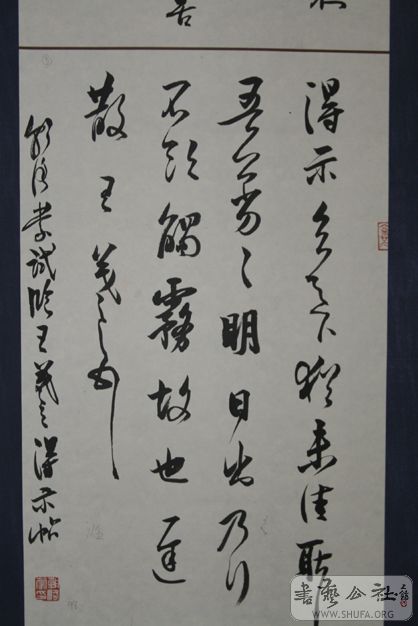 得示知足下猶未佳耿
吾亦劣〻明日出乃行
不欲觸霧故也遲
散王羲之頓首
試臨王羲之得示帖
書藝公社
WWW.SHUFA.ORG